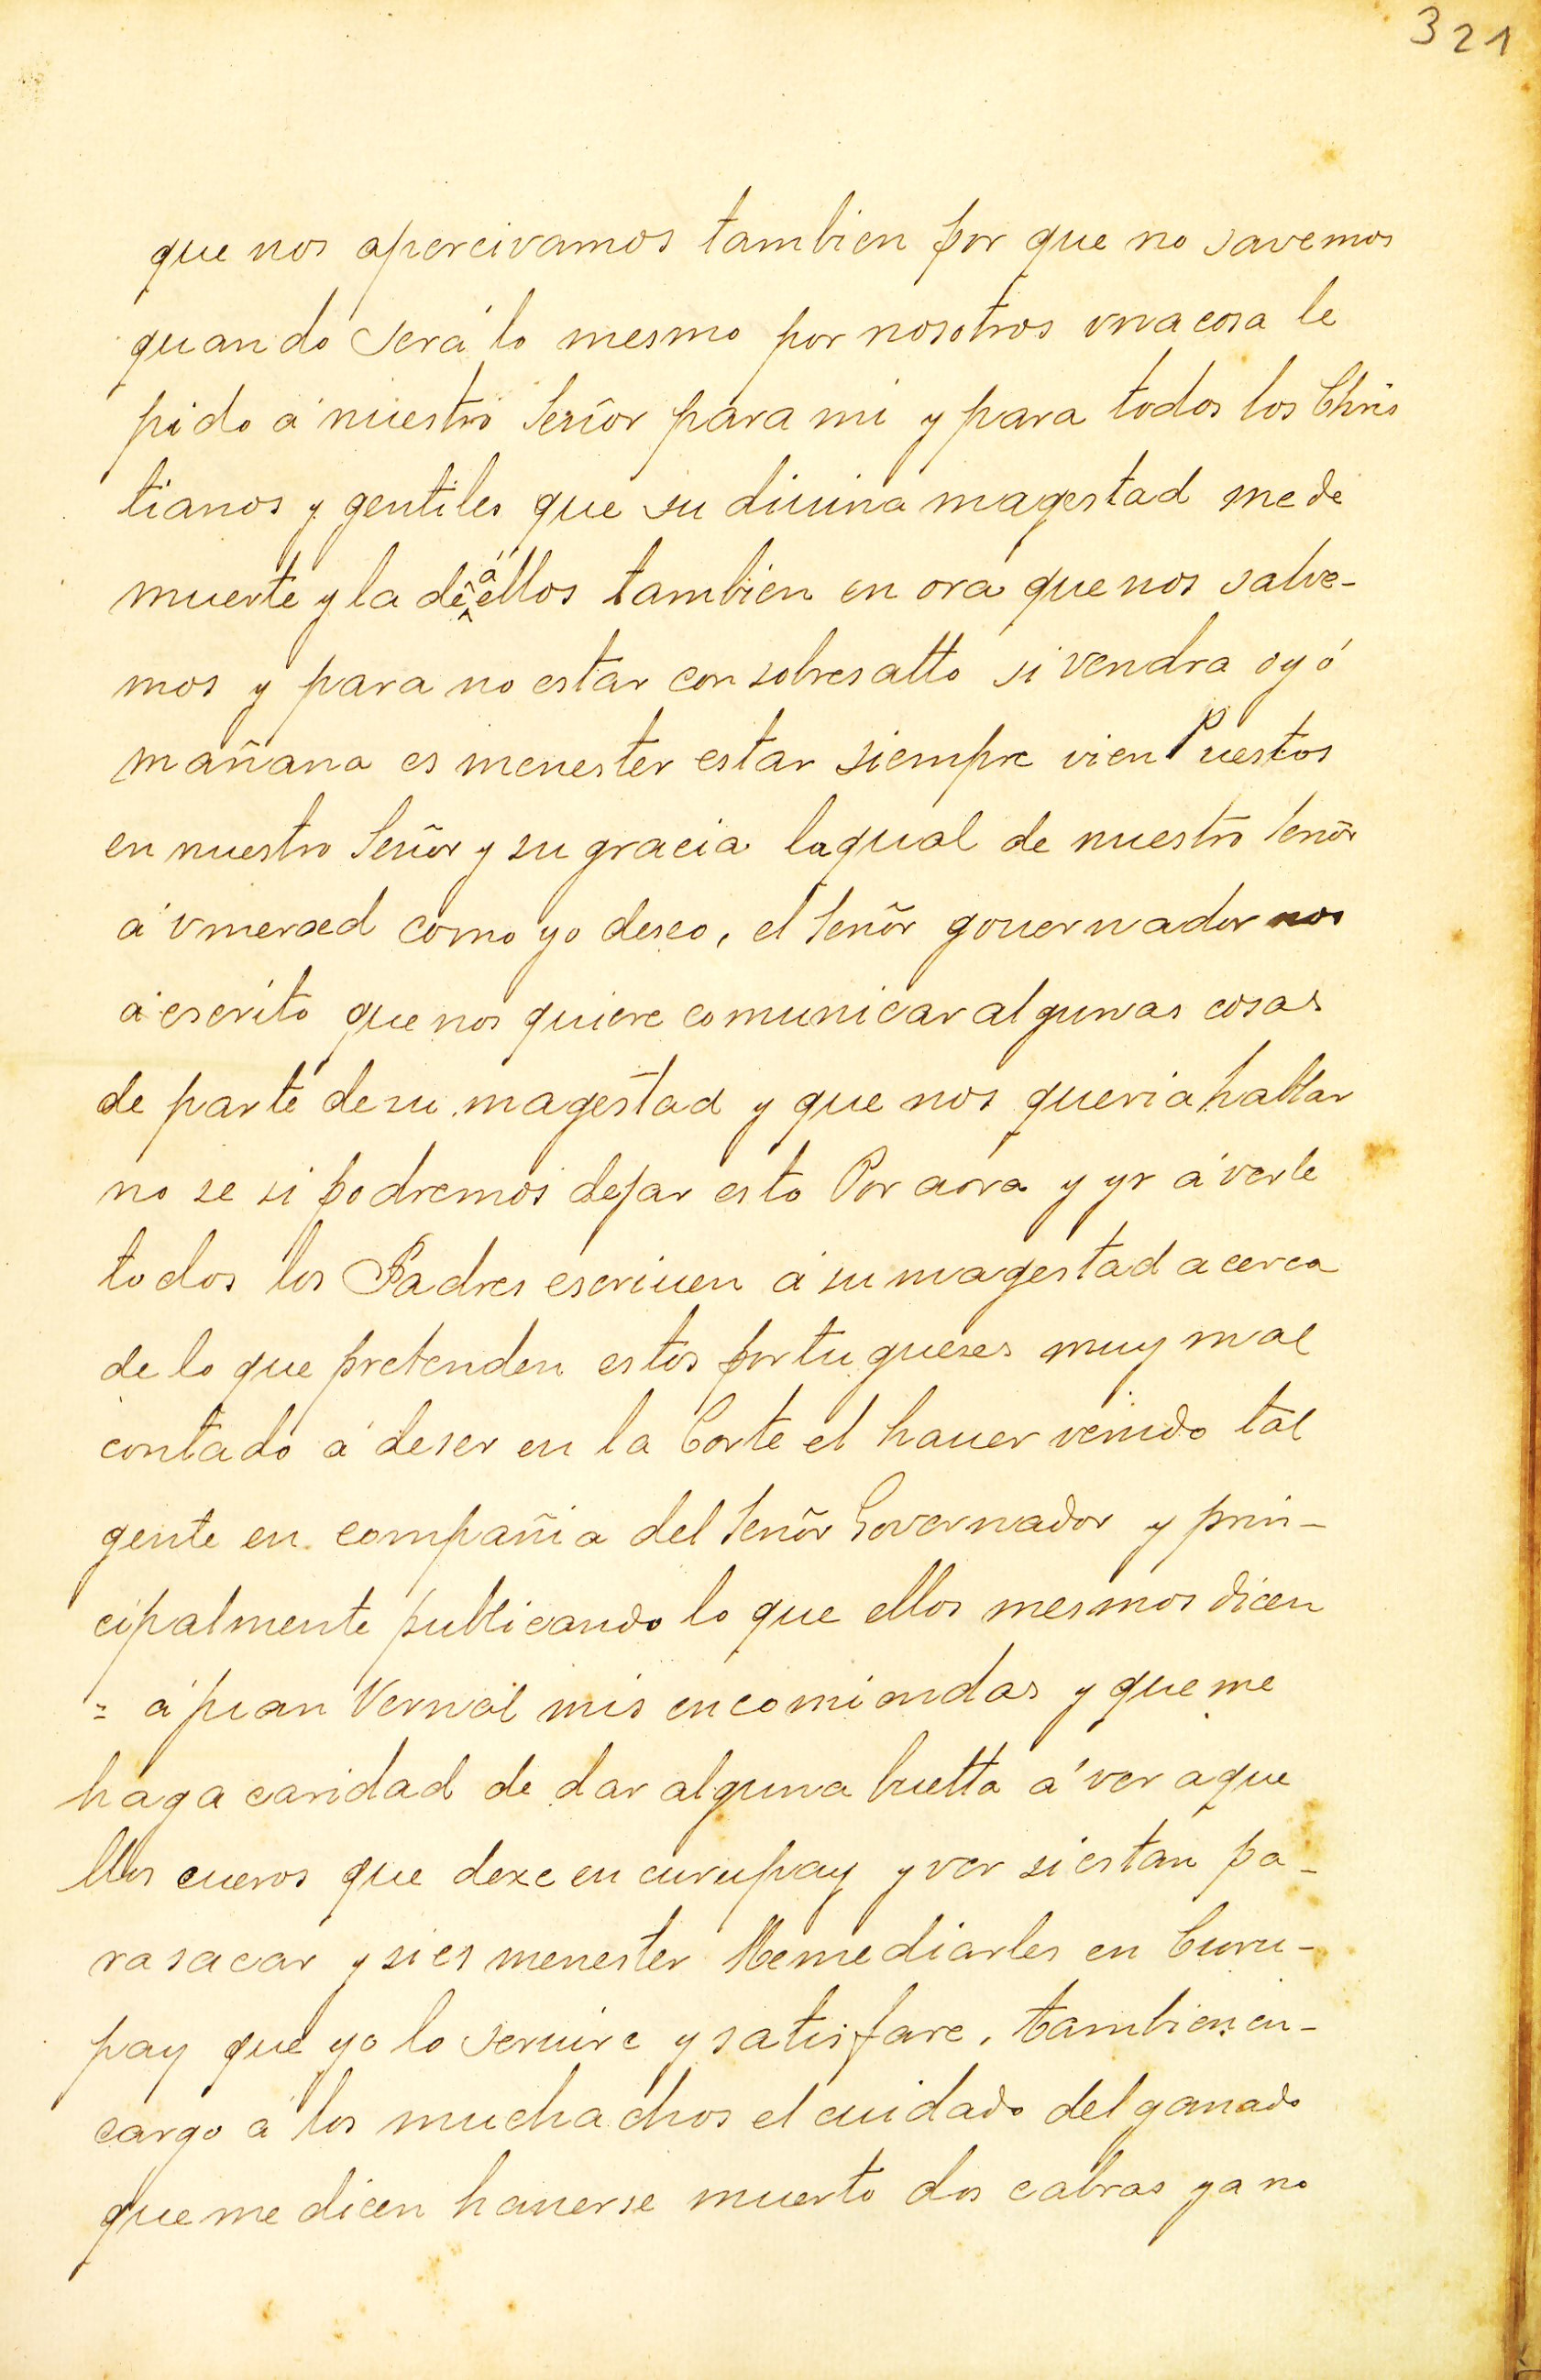 321
que nos aperceivamos tambien por que no savemos
quando será lo mesmo por nosotros una cosa le
pido á nuestro Señor para mi y para todos los Chris
tianos y gentiles que su diuina magestad me de
muerte y la dê á ellos tambien en ora que nos salve-
mos y para no estar con sobresalto si vendra oy ó
mañana es menester estar siempre vien Puestos
en nuestro Señor y su gracia la qual de nuestro Señor
á vmersed como yo deseo, el Señor gouernador nos
á escrito que nos quiere comunicar algunas cosas
de parte de su magestad y que nos queria hablar
no se si podremos dejar esto Por aora y yr á verle
todos los Padres escriuen á su magestad acerca
de lo que pretenden estos portugueses muy mal
contado á de ser en la Corte el hauer venido tal
gente en compañia del Señor Governador y prin-
cipalmente publicando lo que ellos mesmos dicen
= á juan Vernal mis encomiendas y que me
haga caridad de dar alguna buelta á ver aque
llos cueros que dexe en curupay y ver si estan pa-
ra sacar y si es menester Remediarles en Curu-
pay que yo lo seruire y satisfare, tambien en-
cargo á los muchachos el cuidado del ganado
que me dicen hauerse muerto dos cabras ya no